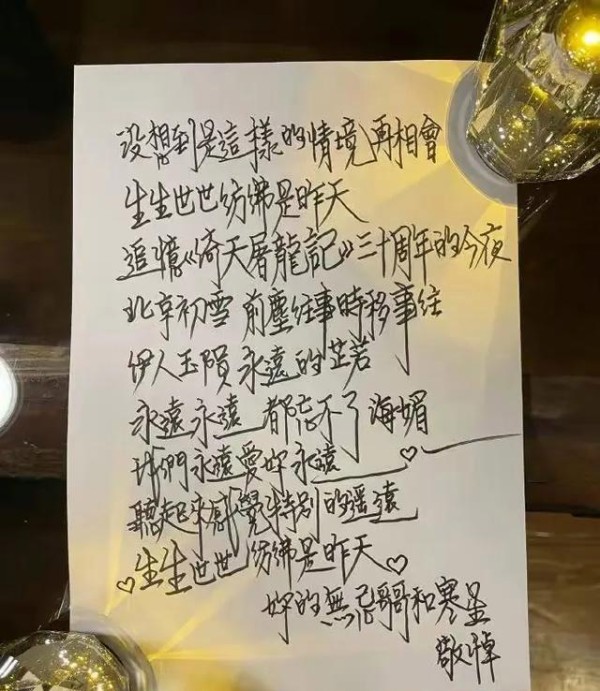 没想到是這樣的情境再相會
生生世世紡彿是昨天
追憶《倚天屠龍記》三十周年的今夜
北京初雪 前塵往事時移事往
伊人玉隕 永遠的芷若
永遠永遠 都忘不了海媚
我們永遠愛妳永遠
聽起來感覺特別的遥遠
生生世世紡彿是昨天
妳的無忌哥哥和寒星
敬悼